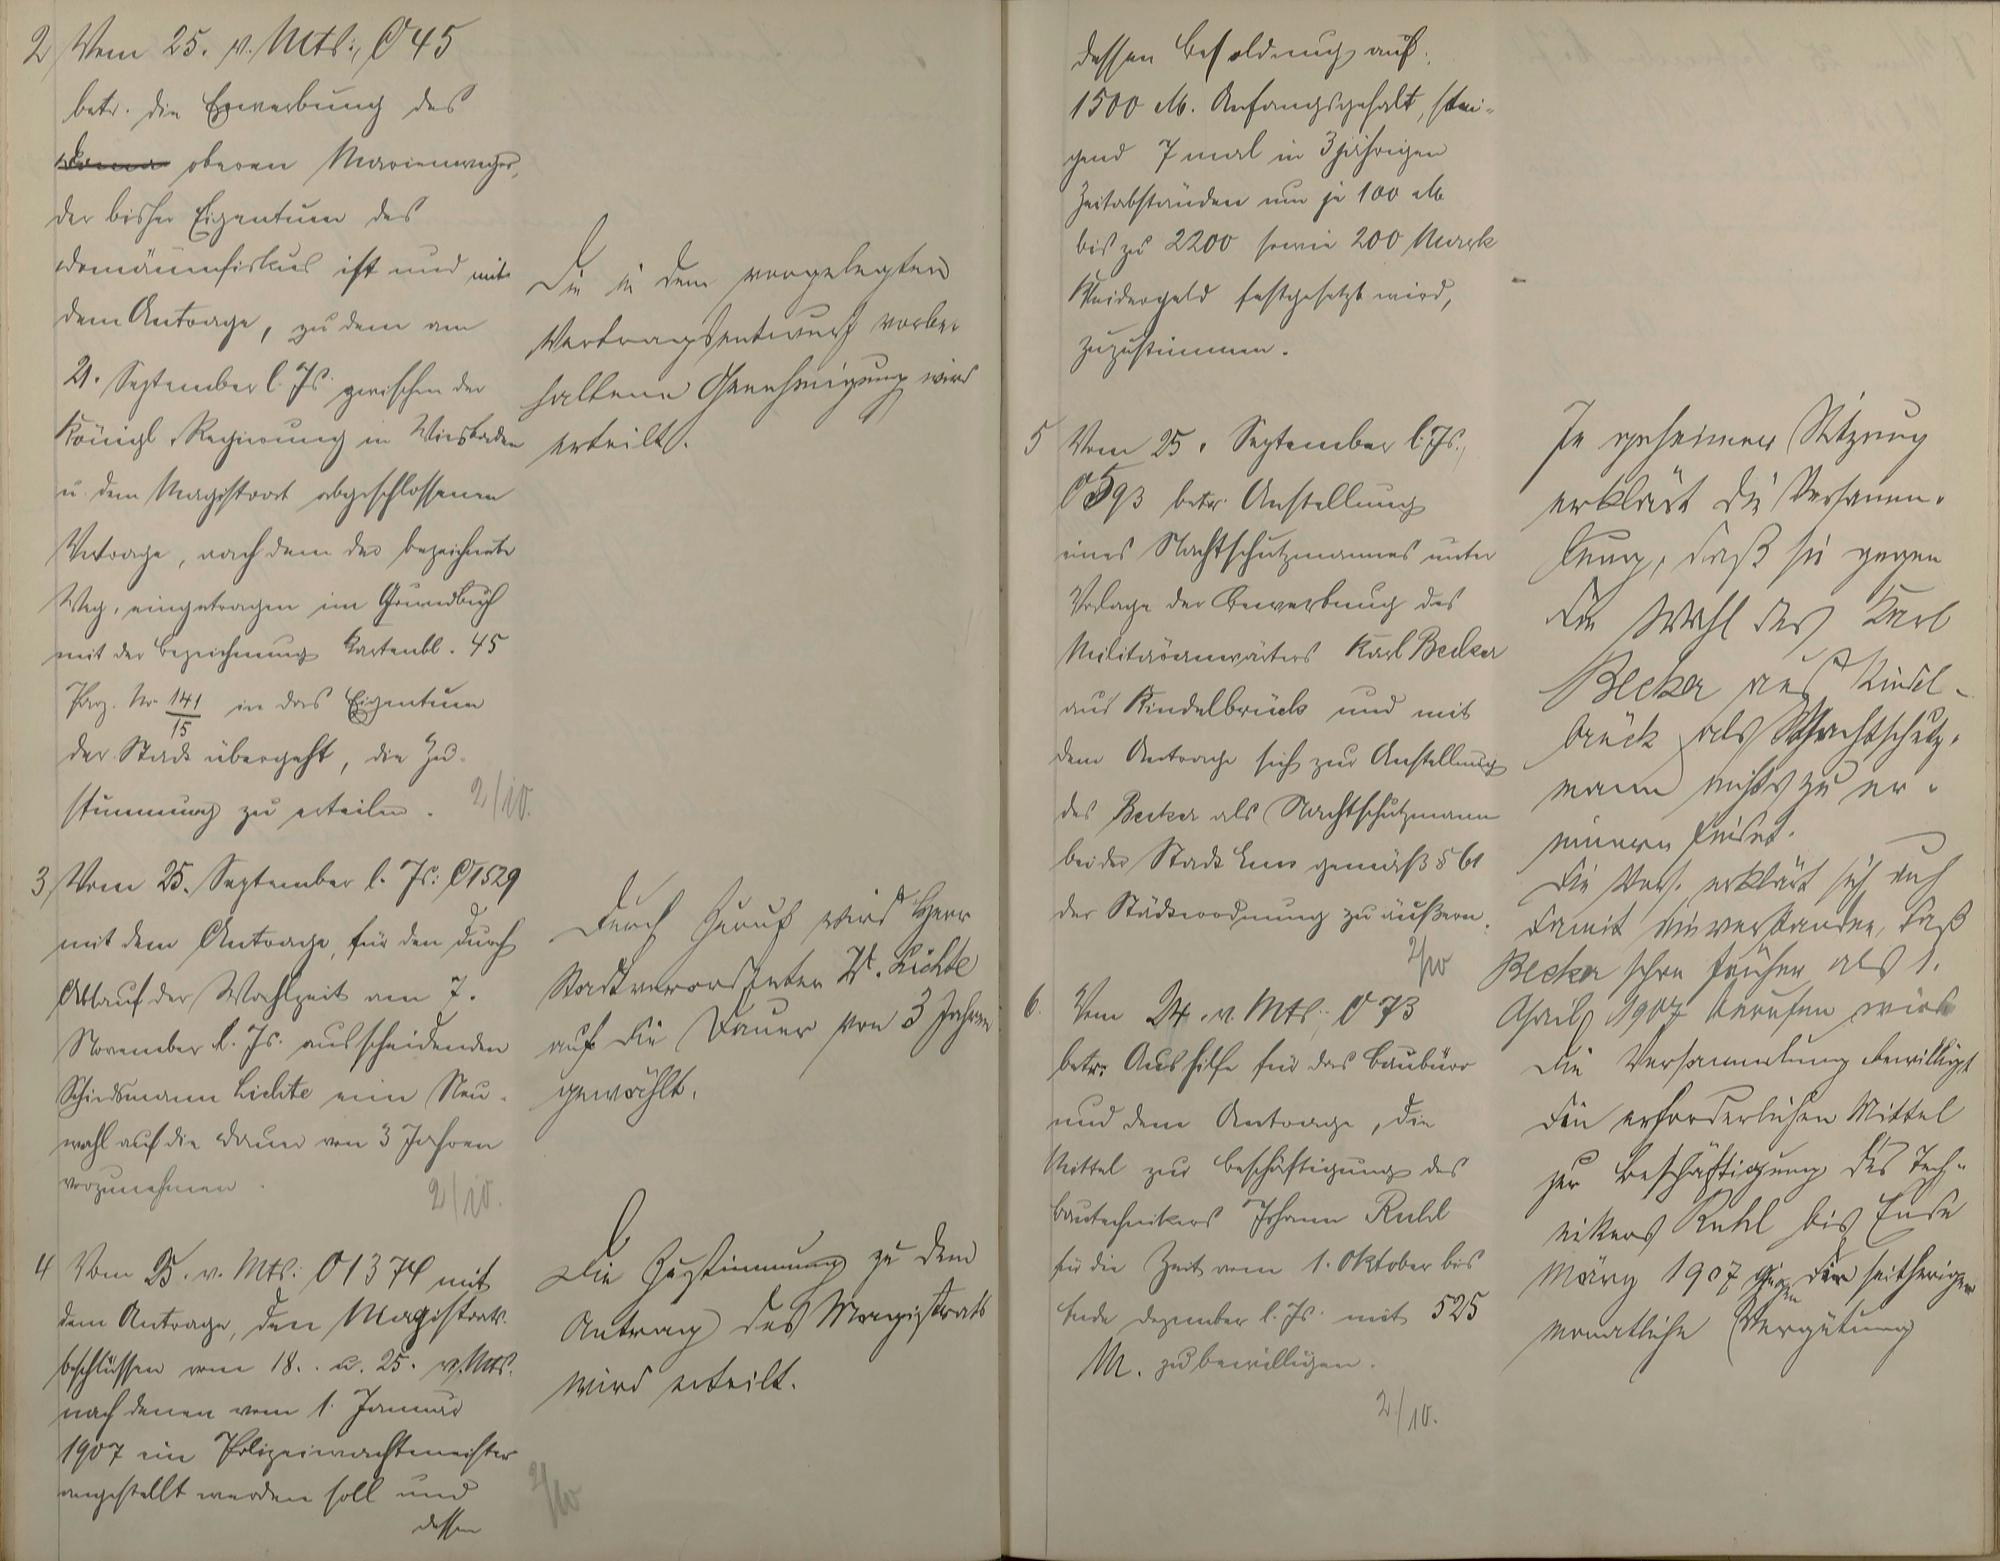 2 Vom 25. v. Mts:, O 45
betr. die Erwerbung des
oberen Marienweges,
der bisher Eigentum des
Domänenfiskus ist und mit
dem Antrage, zu dem am
21. September l. Js. zwischen der
Königl. Regierung in Wiesbaden
u. dem Magistrat abgeschlossenen
Vertrage, nach dem der bezeichnete
Weg, eingetragen im Grundbuch
mit der Bezeichnung Kartenbl. 45
Parz. Nr. 141/15 in das Eigentum
der Stadt übergeht, die Zu-
stimmung zu erteilen.
2/10.
Die in dem vorgelegten
Vertragsentwurf vorbe-
haltene Genehmigung wird
erteilt.
3 Vom 25. September l. Js: O 1529
mit dem Antrage, für den durch
Ablauf der Wahlzeit am 7.
November l. Js. ausscheidenden
Schiedsmann Lichte eine Neu-
wahl auf die Dauer von 3 Jahren
vorzunehmen.
2/10.
Durch Zuruf wird Herr
Stadtverordneter W. Lichte
auf die Dauer von 3 Jahren
gewählt.
4 Vom 25. v. Mts: O 1374 mit
dem Antrage, den Magistrats-
beschlüssen vom 18. u. 25. v. Mts.
nach denen vom 1. Januar
1907 ein Polizeiwachtmeister
angestellt werden soll und
dessen
2/10
Die Zustimmung zu dem
Antrag des Magistrats
wird erteilt.
dessen Besoldung auf
1500 M. Anfangsgehalt, stei-
gend 7 mal in 3jährigen
Zeitabständen um je 100 M
bis zu 2200 sowie 200 Mark
Kleidergeld festgesetzt wird,
zuzustimmen.
5 Vom 25. September l. Js.,
O 593 betr. Anstellung
eines Nachtschutzmannes unter
Vorlage der Bewerbung des
Militäranwärters Karl Becker
aus Kindelbrück und mit
dem Antrage sich zur Anstellung
des Becker als Nachtschutzmann
bei der Stadt Ems gemäß § 61
der Städteordnung zu äußern.
2/10
In geheimer Sitzung
erklärt die Versamm-
lung, daß sie gegen
die Wahl des Karl
Becker aus Kindel-
brück als Nachtschutz-
mann nichts zu er-
innern findet.
Die Vers. erklärt sich auch
damit einverstanden, daß
Becker schon früher als 1.
April 1907 berufen wird
6. Vom 24. v. Mts.; O 73
betr. Aushilfe für das Baubüro
und dem Antrage, die
Mittel zur Beschäftigung des
Bautechnikers Johann Ruhl
für die Zeit vom 1. Oktober bis
Ende Dezember l. Js. mit 525
M. zu bewilligen.
2/10.
Die Versammlung bewilligt
die erforderlichen Mittel
zur Beschäftigung des Tech-
nikers Ruhl bis Ende
März 1907 gegen die seitherige
monatliche Vergütung